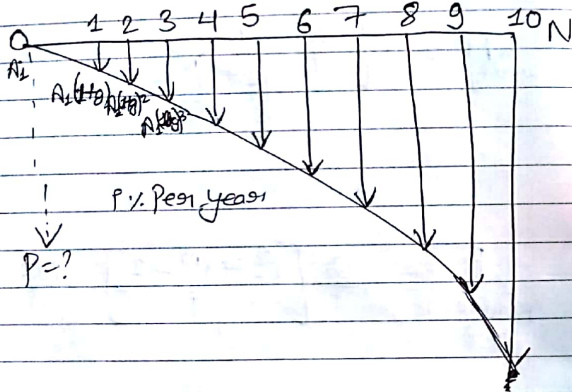 0 1 2 3 4 5 6 7 8 9 10 N
A₁
A₁(1+g) A₁(1+g)² A₁(1+g)³
P% Per year
P=?